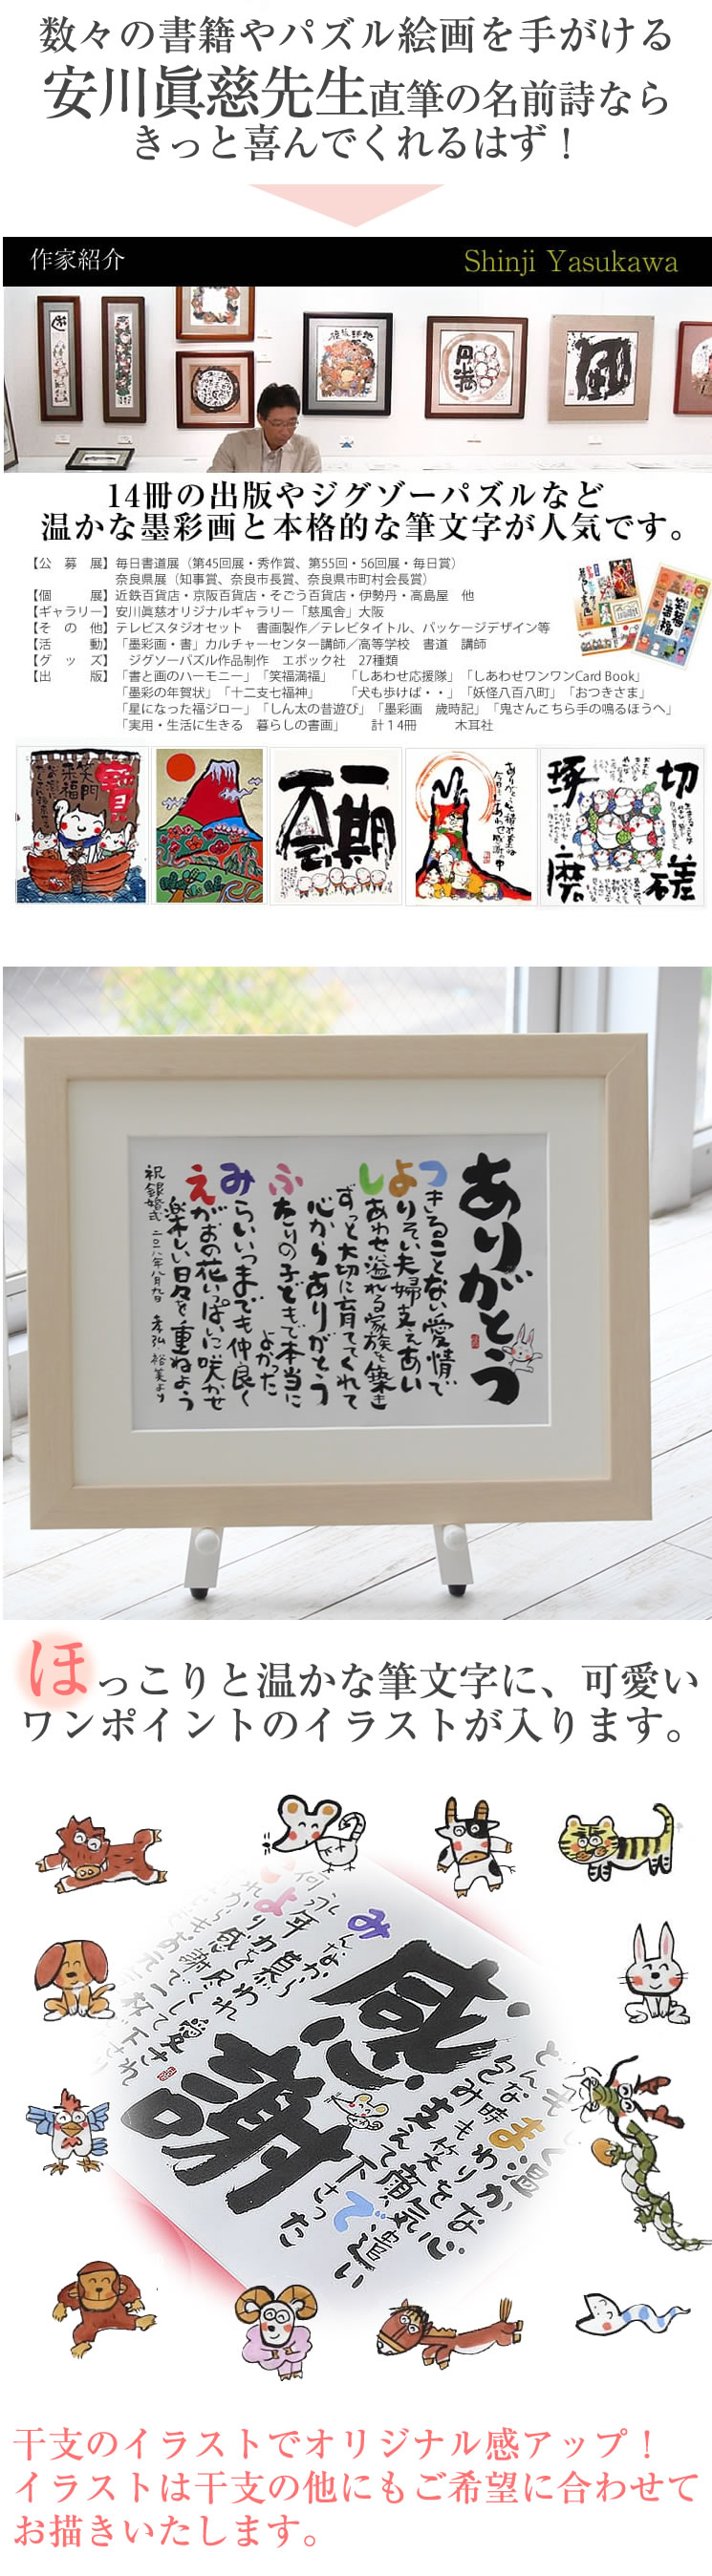 数々の書籍やパズル絵画を手がける
安川眞慈先生直筆の名前詩なら
きっと喜んでくれるはず！
作家紹介
Shinji Yasukawa
14冊の出版やジグゾーパズルなど
温かな墨彩画と本格的な筆文字が人気です。
【公募展】毎日書道展（第45回展・秀作賞、第55回・56回展・毎日賞）
奈良県展（知事賞、奈良市長賞、奈良県市町村会長賞）
【個展】近鉄百貨店・京阪百貨店・そごう百貨店・伊勢丹・高島屋　他
【ギャラリー】安川眞慈オリジナルギャラリー「慈風舎」大阪
【その他】テレビスタジオセット　書画製作／テレビタイトル、パッケージデザイン等
【活動】「墨彩画・書」カルチャーセンター講師／高等学校　書道　講師
【グッズ】ジグソーパズル作品制作　エポック社　27種類
【出版】「書と画のハーモニー」「笑福満福」　「しあわせ応援隊」「しあわせワンワンCard Book」
「墨彩の年賀状」「十二支七福神」　「犬も歩けば・・」「妖怪八百八町」「おつきさま」
「星になった福ジロー」「しん太の昔遊び」「墨彩画　歳時記」「鬼さんこちら手の鳴るほうへ」
「実用・生活に生きる　暮らしの書画」　計14冊　木耳社
笑門来福
一期一会
切磋琢磨
ありがとう
つきることない愛情で
よりそい夫婦支えあい
しあわせ溢れる家族を築き
ずっと大切に育ててくれて
心からありがとう
ふたりの子どもで本当に
よかった
みらいいつまでも仲良く
えがおの花いっぱいに咲かせ
楽しい日々を重ねよう
祝銀婚式 二〇一八年八月九日 孝弘・裕美より
ほっこりと温かな筆文字に、可愛い
ワンポイントのイラストが入ります。
感謝
干支のイラストでオリジナル感アップ！
イラストは干支の他にもご希望に合わせて
お描きいたします。